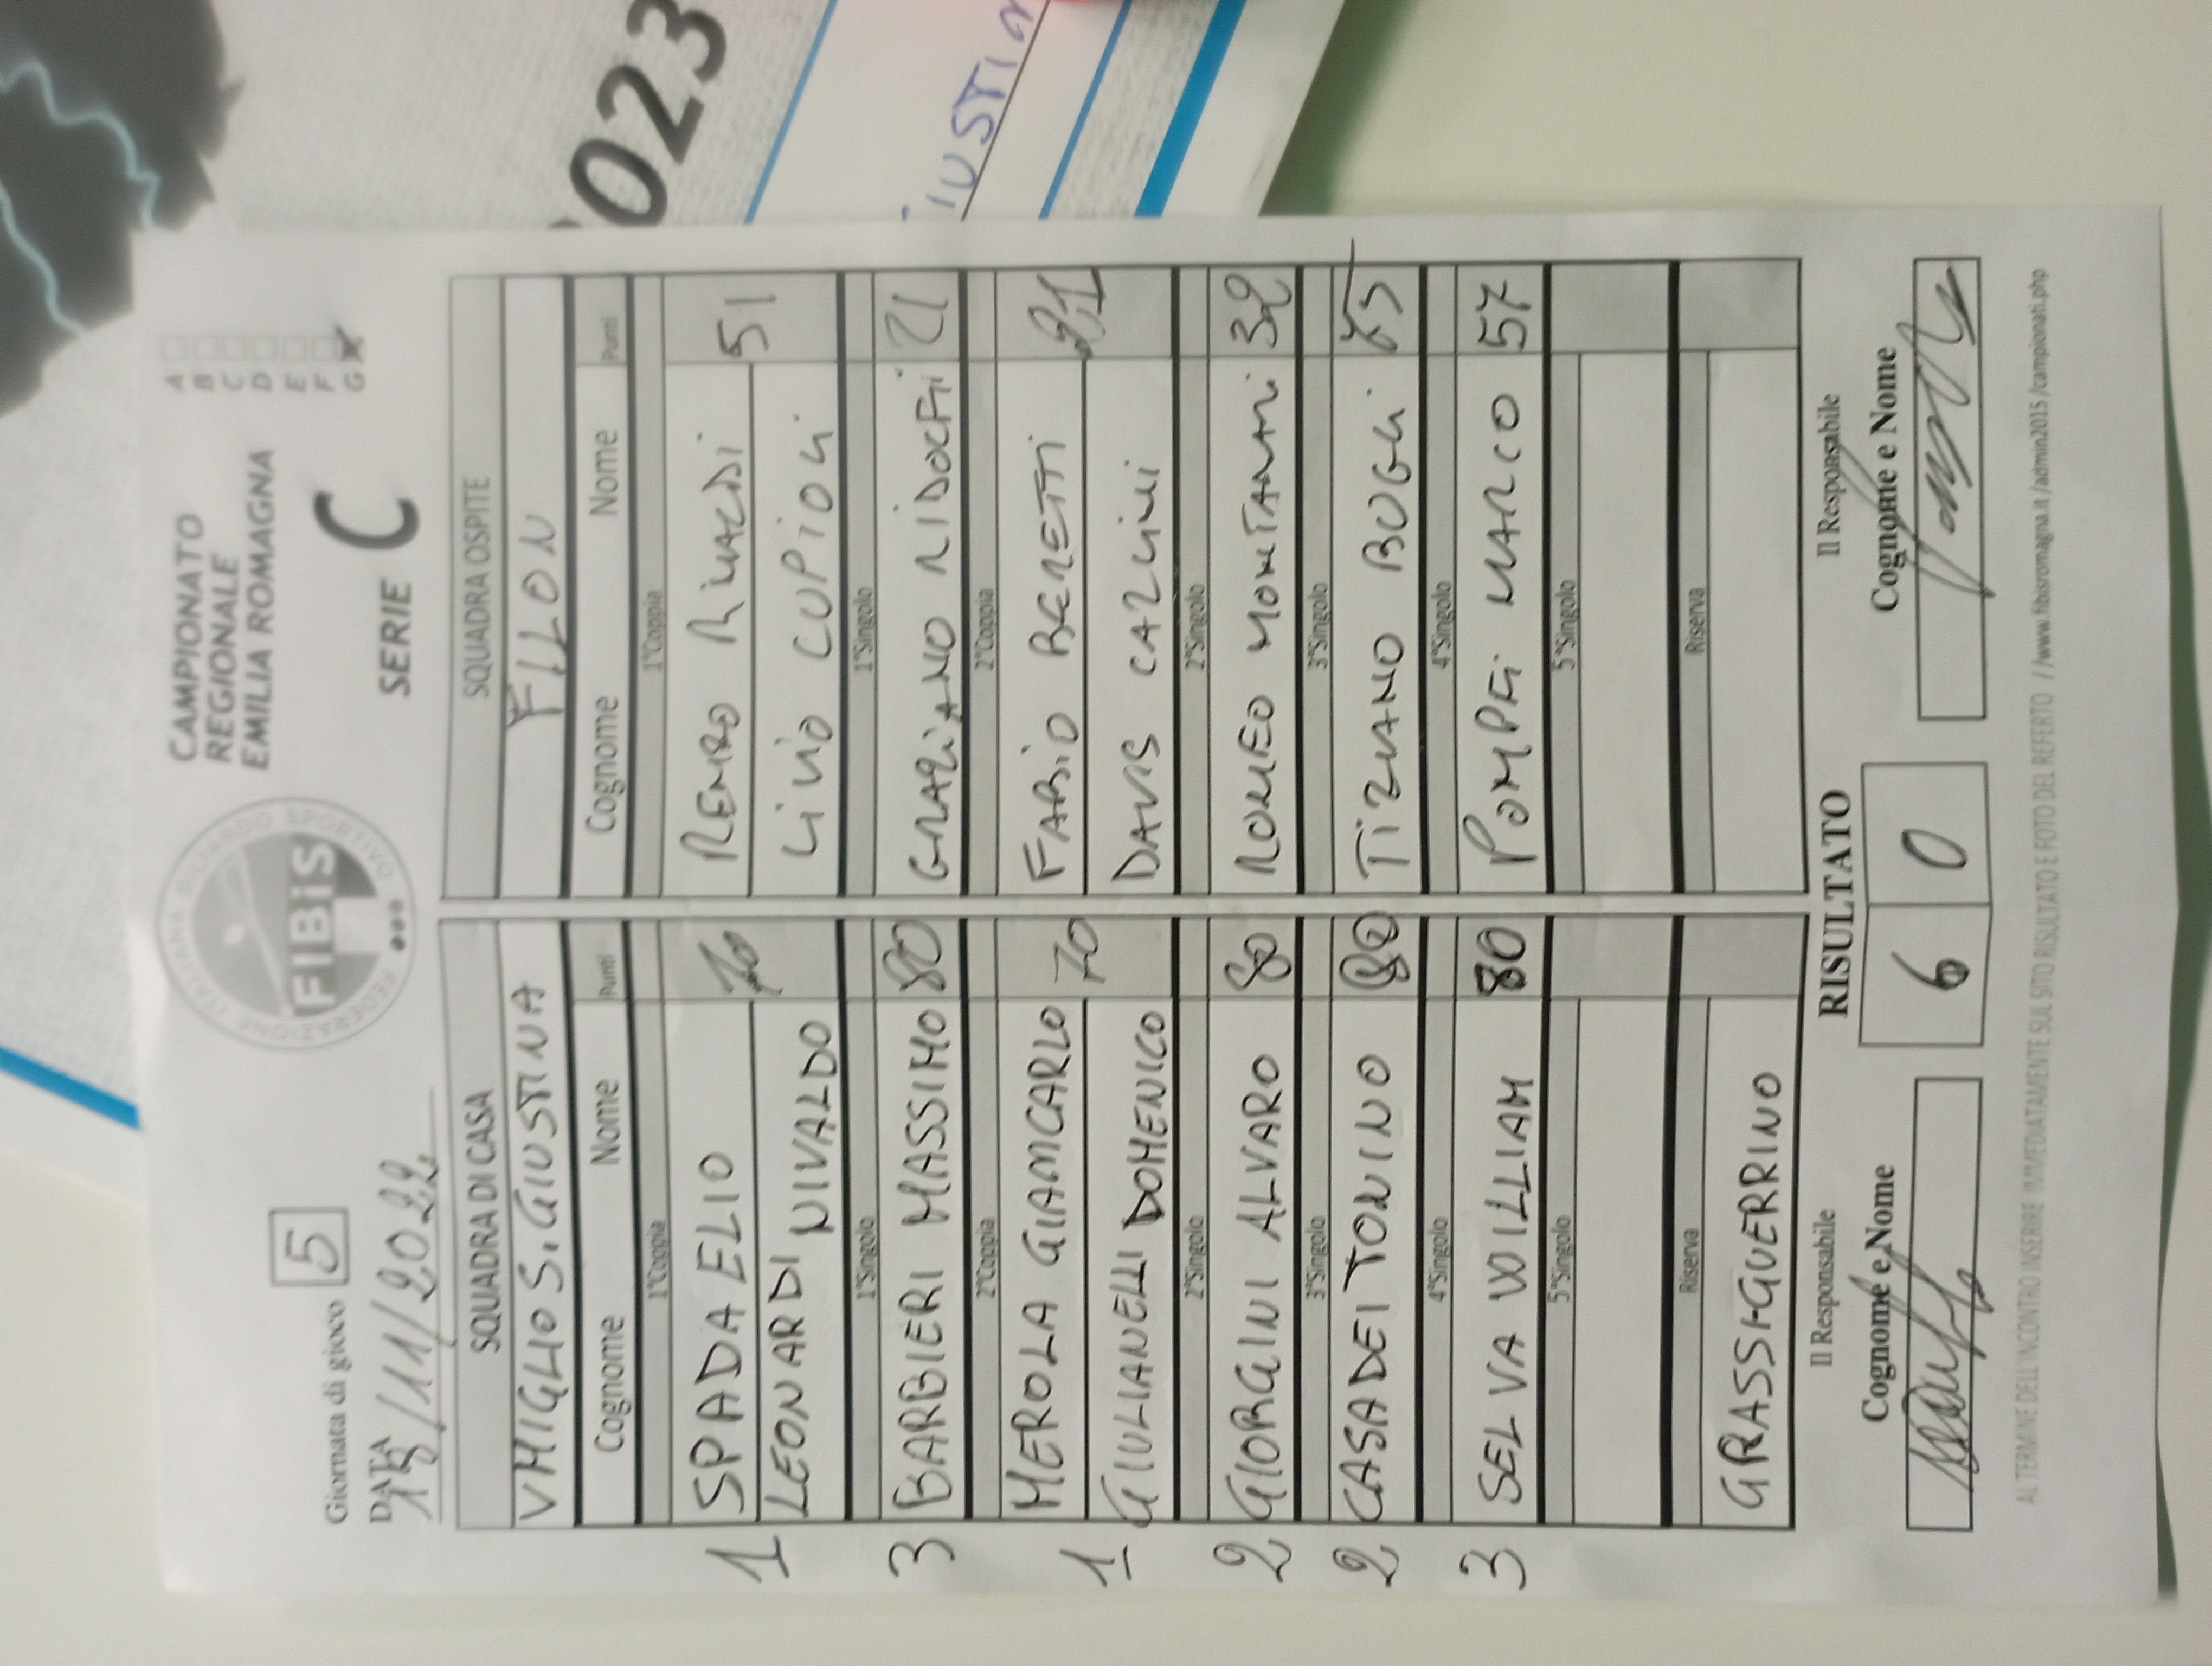 023
IUSTIN
Giornata di gioco 5
DATA
/11/2022
FEDERAZIONE ITALIANA BILIARDO SPORTIVO
FIBiS
CAMPIONATO
REGIONALE
EMILIA ROMAGNA
SERIE C
A
B
C
D
E
F
G
SQUADRA DI CASA SQUADRA OSPITE
V MIGLIO S. GIUSTINA FILON
Cognome Nome Punti Cognome Nome Punti
1°Coppia 1°Coppia
1 SPADA ELIO 70 REMO RINALDI 51
LEONARDI NIVALDO LIVIO CUPIOLI
1°Singolo 1°Singolo
3 BARBIERI MASSIMO 80 GRAZIANO RIDOLFI 21
2°Coppia 2°Coppia
1 MEROLA GIANCARLO 70 FABIO
GIULIANELLI DOMENICO DAVIS
2°Singolo 2°Singolo
2 GIORGINI ALVARO 80 ROMEO MONTANARI 32
3°Singolo 3°Singolo
2 CASADEI TONINO 80 TIZIANO BUGLI
4°Singolo 4°Singolo
3 SELVA WILLIAM 80 POMPEI MARCO 57
5°Singolo 5°Singolo
Riserva Riserva
GRASSI GUERRINO
Il Responsabile RISULTATO Il Responsabile
Cognome e Nome 6 0 Cognome e Nome
AL TERMINE DELL'INCONTRO INSERIRE IMMEDIATAMENTE SUL SITO RISULTATO E FOTO DEL REFERTO //www.fibisromagna.it/admin2015/campionati.php